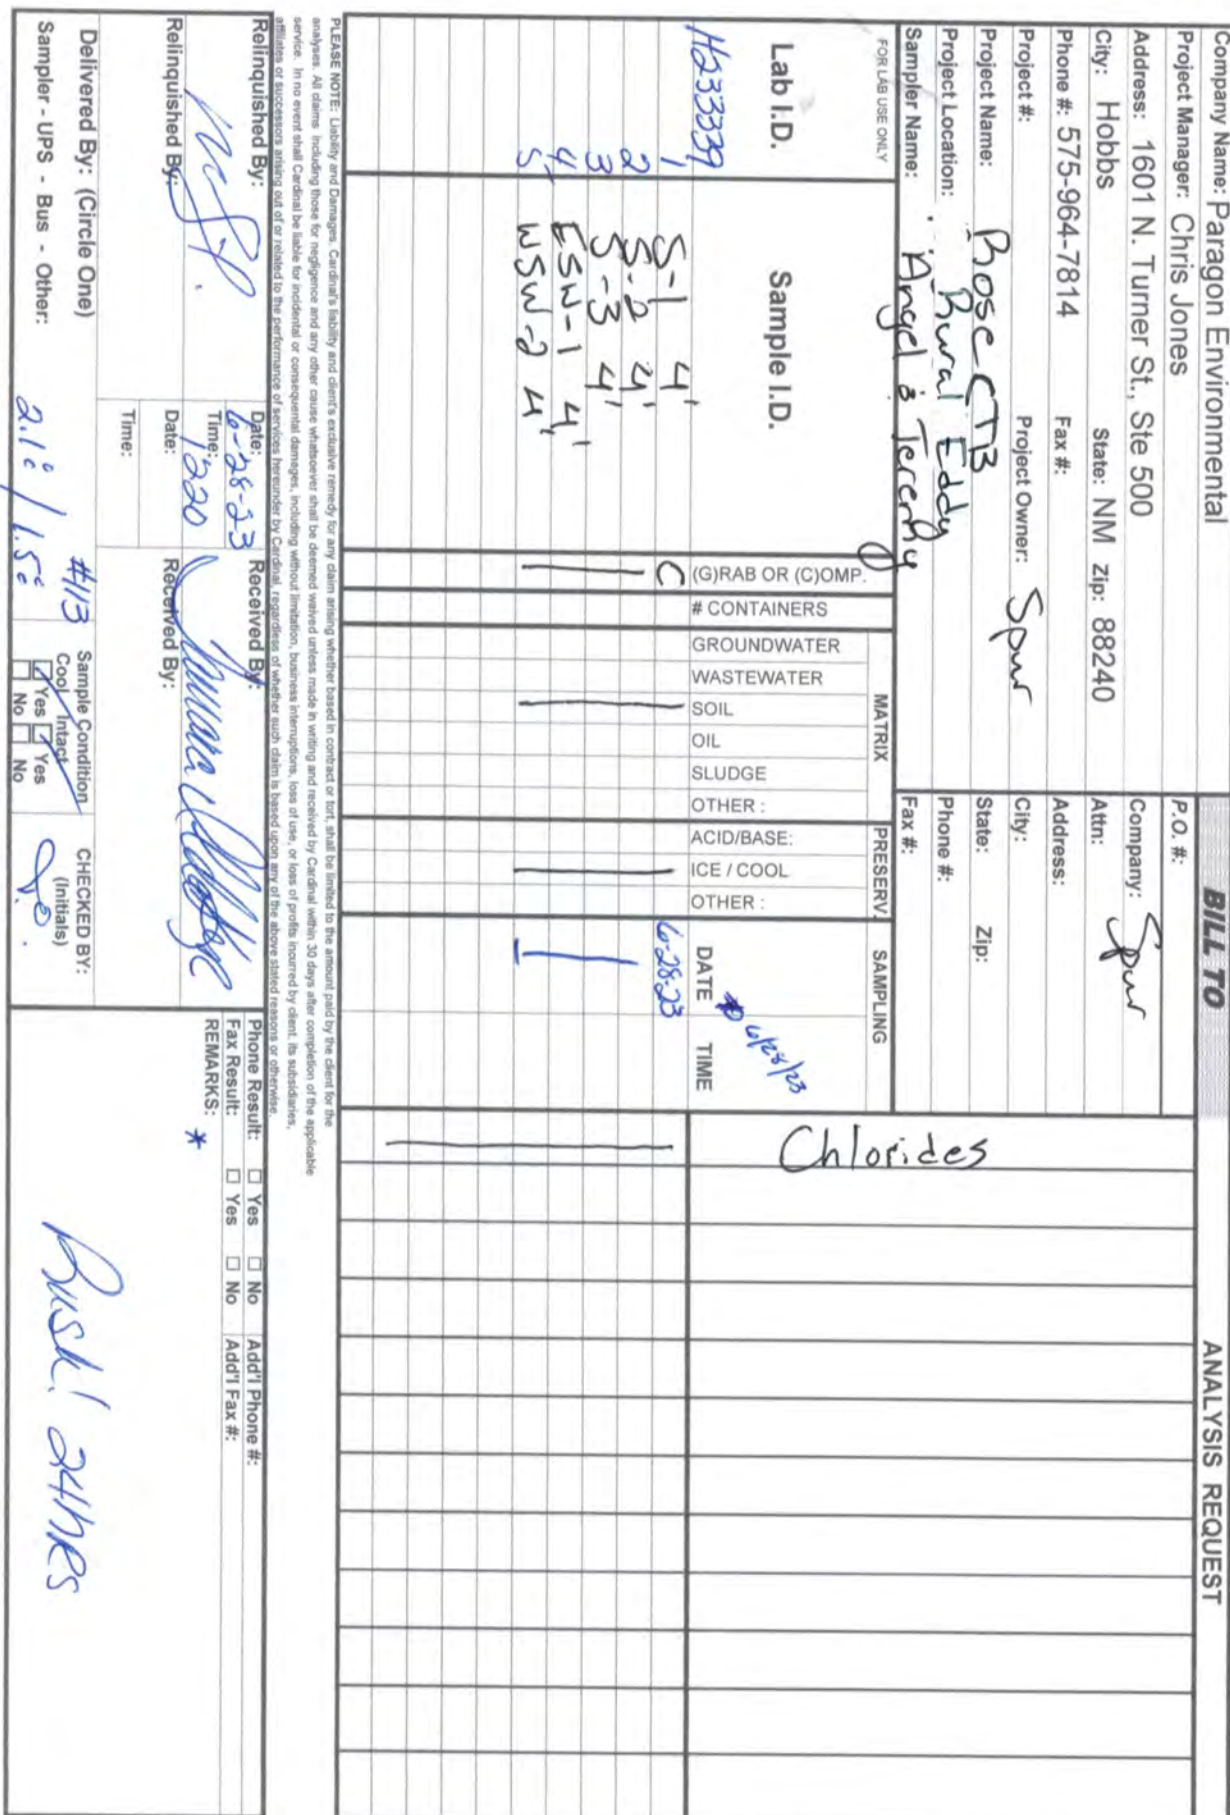 Company Name: Paragon Environmental
Project Manager: Chris Jones
Address: 1601 N. Turner St., Ste 500
City: Hobbs State: NM Zip: 88240
Phone #: 575-964-7814 Fax #:
Project #: Project Owner: Spur
Project Name: Rose CTB
Project Location: Rural Eddy
Sampler Name: Angel & Jeremy
FOR LAB USE ONLY
BILL TO
P.O. #:
Company: Spur
Attn:
Address:
City:
State: Zip:
Phone #:
Fax #:
ANALYSIS REQUEST
Chlorides
Lab I.D.
Sample I.D.
(G)RAB OR (C)OMP.
# CONTAINERS
MATRIX
GROUNDWATER
WASTEWATER
SOIL
OIL
SLUDGE
OTHER :
PRESERV.
ACID/BASE:
ICE / COOL
OTHER :
SAMPLING
6/28/23
DATE TIME
H233339
1 S-1 4' C 6-28-23
2 S-2 4'
3 S-3 4'
4 ESW-1 4'
5 WSW-2 4'
PLEASE NOTE: Liability and Damages. Cardinal's liability and client's exclusive remedy for any claim arising whether based in contract or tort, shall be limited to the amount paid by the client for the
analyses. All claims including those for negligence and any other cause whatsoever shall be deemed waived unless made in writing and received by Cardinal within 30 days after completion of the applicable
service. In no event shall Cardinal be liable for incidental or consequental damages, including without limitation, business interruptions, loss of use, or loss of profits incurred by client, its subsidiaries,
affiliates or successors arising out of or related to the performance of services hereunder by Cardinal, regardless of whether such claim is based upon any of the above stated reasons or otherwise.
Relinquished By:
Date: 6-28-23
Time: 1220
Received By:
Relinquished By:
Date:
Time:
Received By:
Phone Result: □ Yes □ No Add'l Phone #:
Fax Result: □ Yes □ No Add'l Fax #:
REMARKS: *
Rush! 24hrs
Delivered By: (Circle One)
Sampler - UPS - Bus - Other:
2.1c / 1.5c
#113
Sample Condition
Cool Intact
Yes Yes
No No
CHECKED BY:
(Initials)